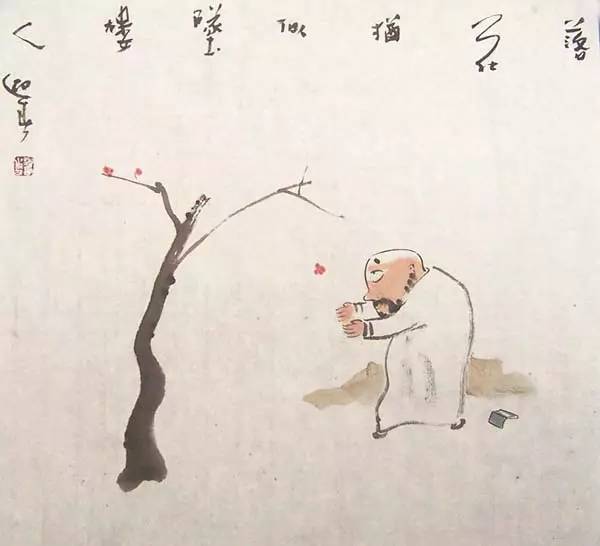 落花猶似墜樓人